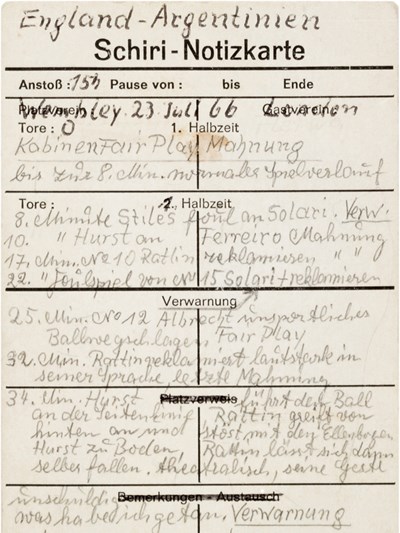 England-Argentinien
Schiri-Notizkarte
Anstoß : 15h Pause von : bis Ende
Platzverein Gastverein
Wembley 23 Juli 66 London
Tore : 0 1. Halbzeit
Kabinen Fair Play Mahnung
bis zur 8. Min. normales Spielverlauf
Tore : 2. Halbzeit
8. Minute Stiles foul an Solari. Verw.
10. " Hurst an Ferreiro Mahnung
17. Min. No 10 Rattin reklamieren " "
22. " Foulspiel von No 15 Solari + reklamieren
Verwarnung
25. Min. No 12 Albrecht unsportliches
Ballwegschlagen Fair Play
32. Min. Rattin reklamiert lautstark in
seiner Sprache, letzte Mahnung
Platzverweis
34. Min. Hurst führt den Ball
an der Seitenlinie Rattin greift von
hinten an und stöst mit den Ellenbogen
Hurst zu Boden, Rattin läst sich dann
selber fallen. theatralisch, seine Geste
Bemerkungen - Austausch
unschuldig
was habe ich getan. Verwarnung